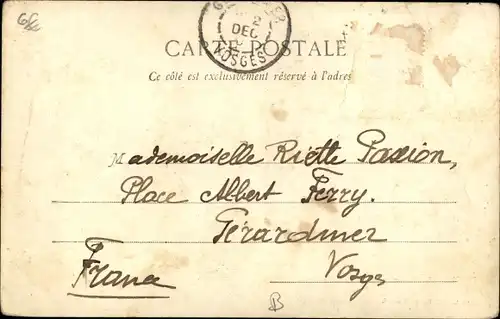 2
DEC
VOSGES
CARTE POSTALE
Ce côté est exclusivement réservé à l'adres
Mademoiselle Riette Passion,
Place Albert Ferry.
Gérardmer
Vosges
France
B